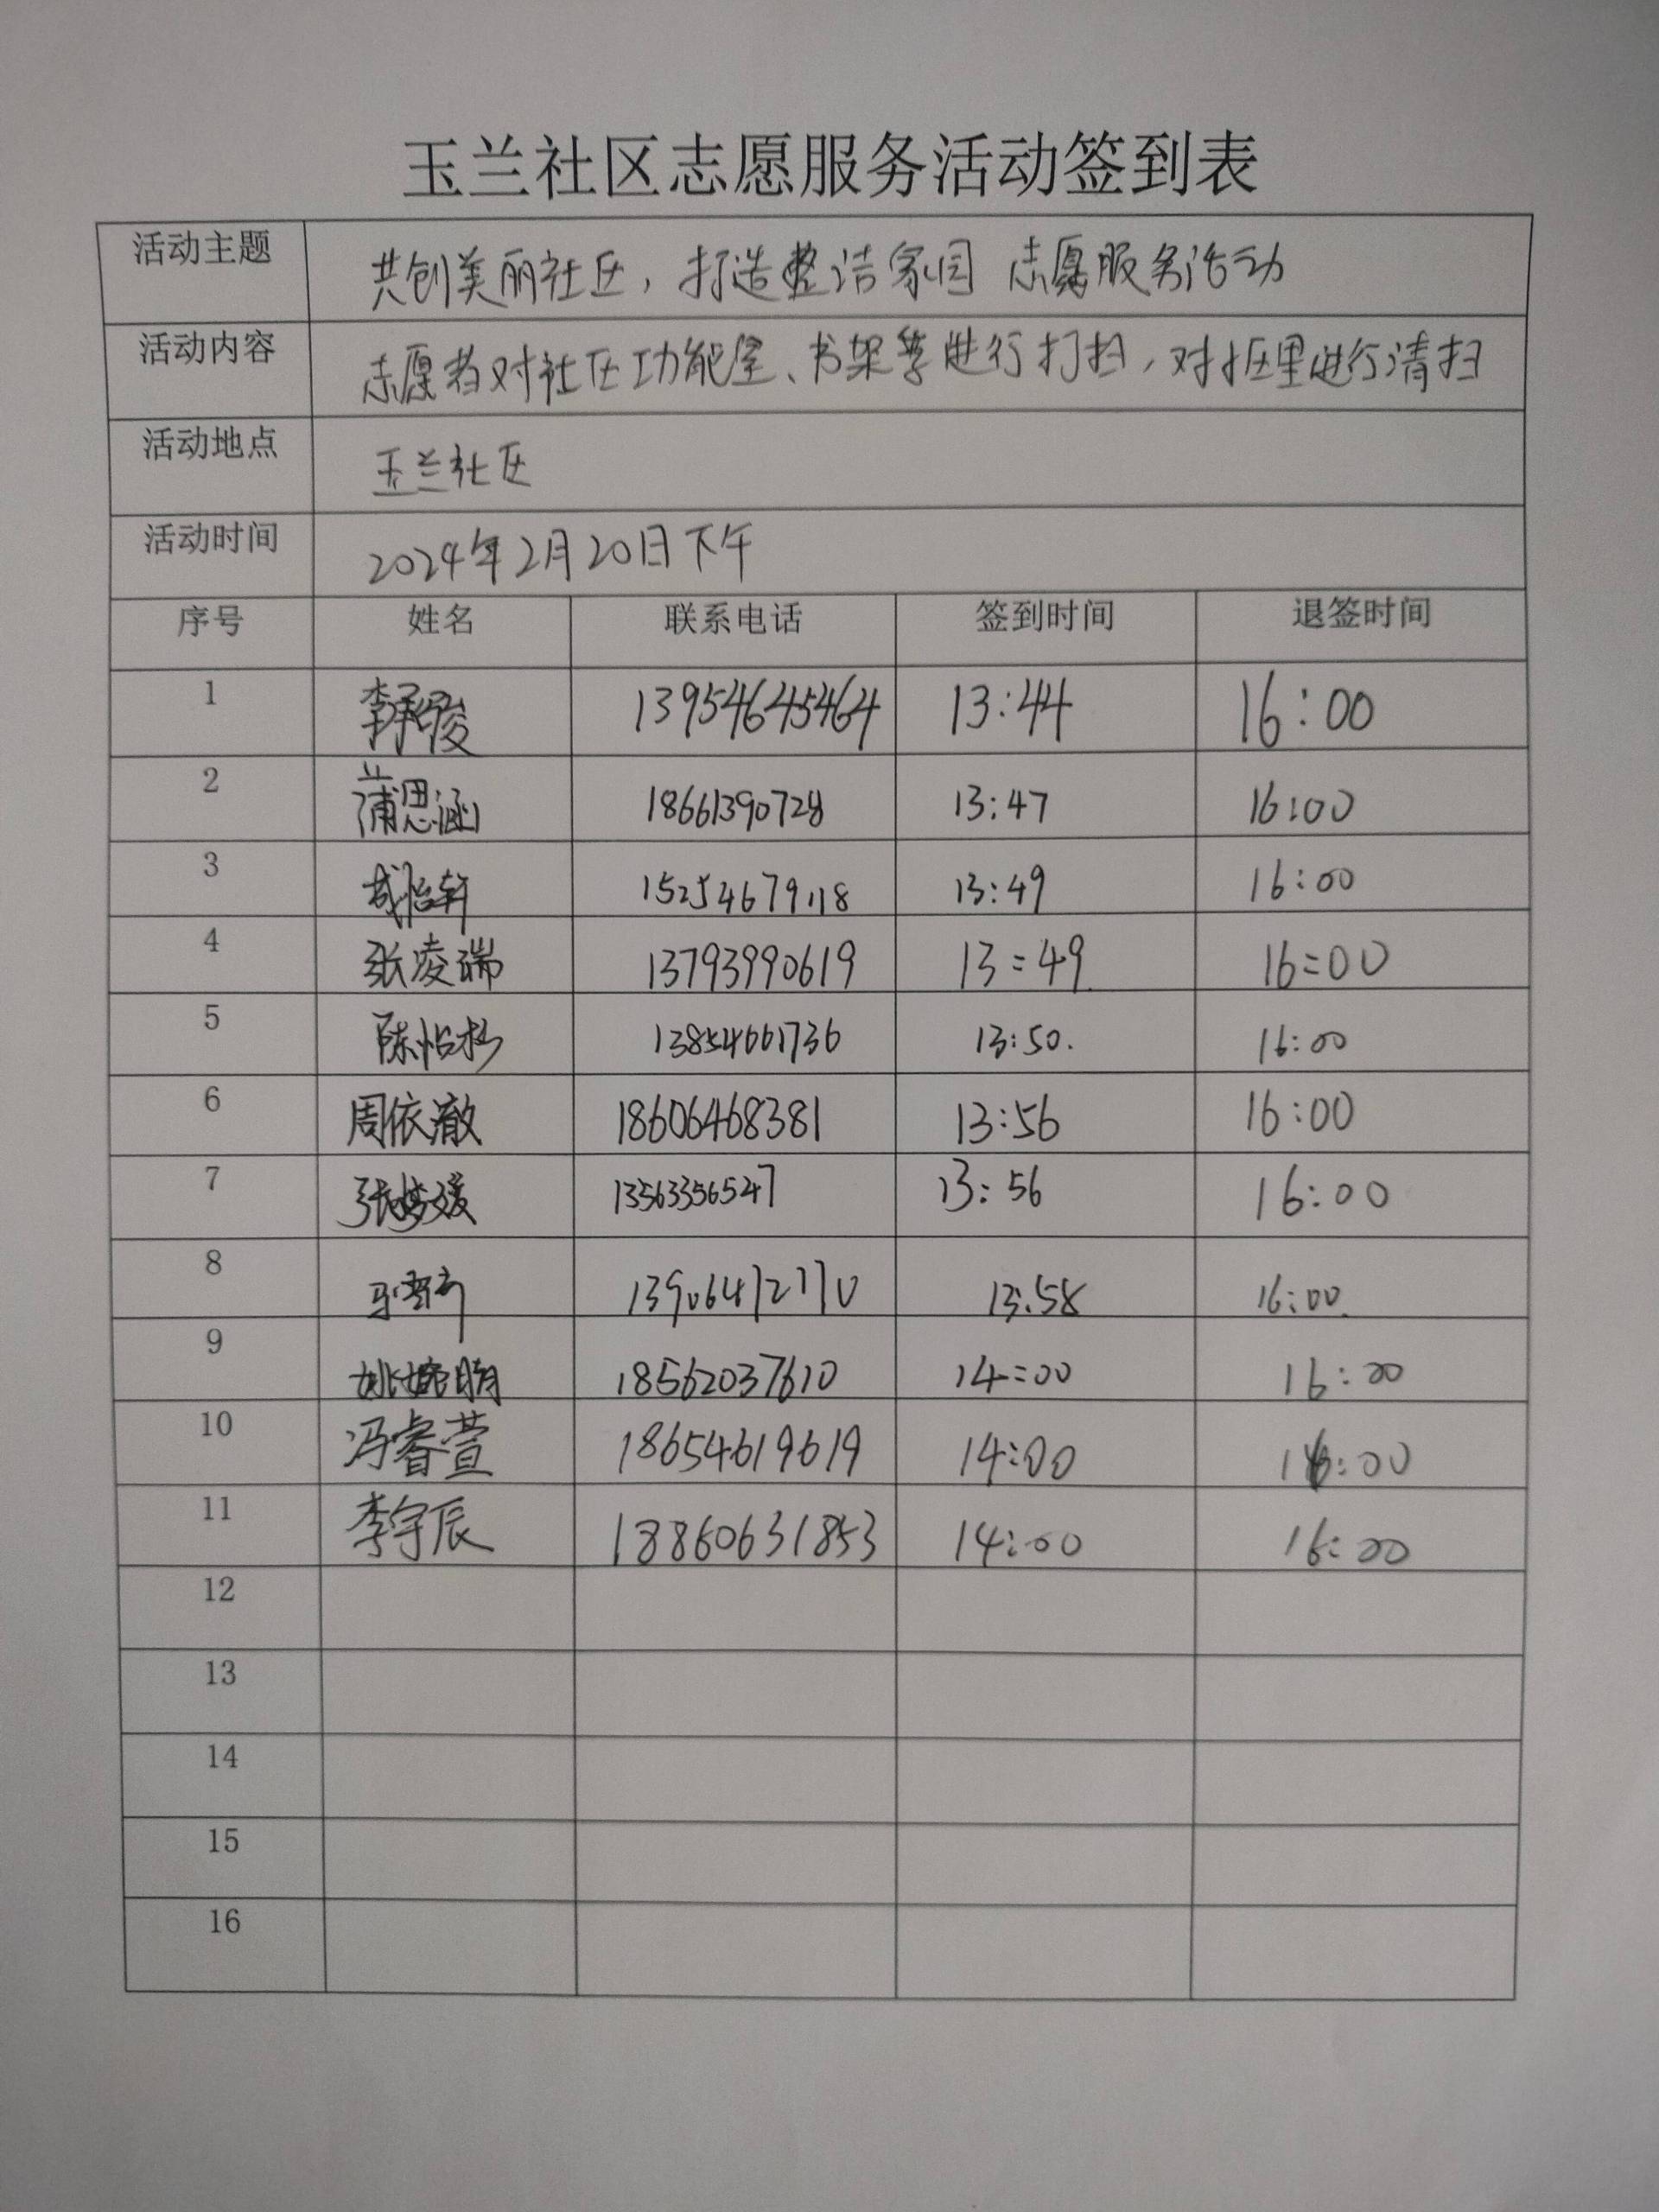 玉兰社区志愿服务活动签到表
活动主题 共创美丽社区，打造整洁家园 志愿服务活动
活动内容 志愿者对社区功能室、书架等进行打扫，对桓里进行清扫
活动地点 玉兰社区
活动时间 2024年2月20日下午
序号 姓名 联系电话 签到时间 退签时间
1 李承俊 13954645464 13:44 16:00
2 蒲思涵 18661390728 13:47 16:00
3 怡轩 15254679118 13:49 16:00
4 张凌瑞 13793990619 13:49 16:00
5 陈怡杉 13854661736 13:50. 16:00
6 周依澈 18606468381 13:56 16:00
7 张梦媛 13563356547 13:56 16:00
8 13:58 16:00
9 姚婉明 18562037610 14:00 16:00
10 冯睿萱 18654619619 14:00 16:00
11 李宇辰 18860631853 14:00 16:00
12
13
14
15
16